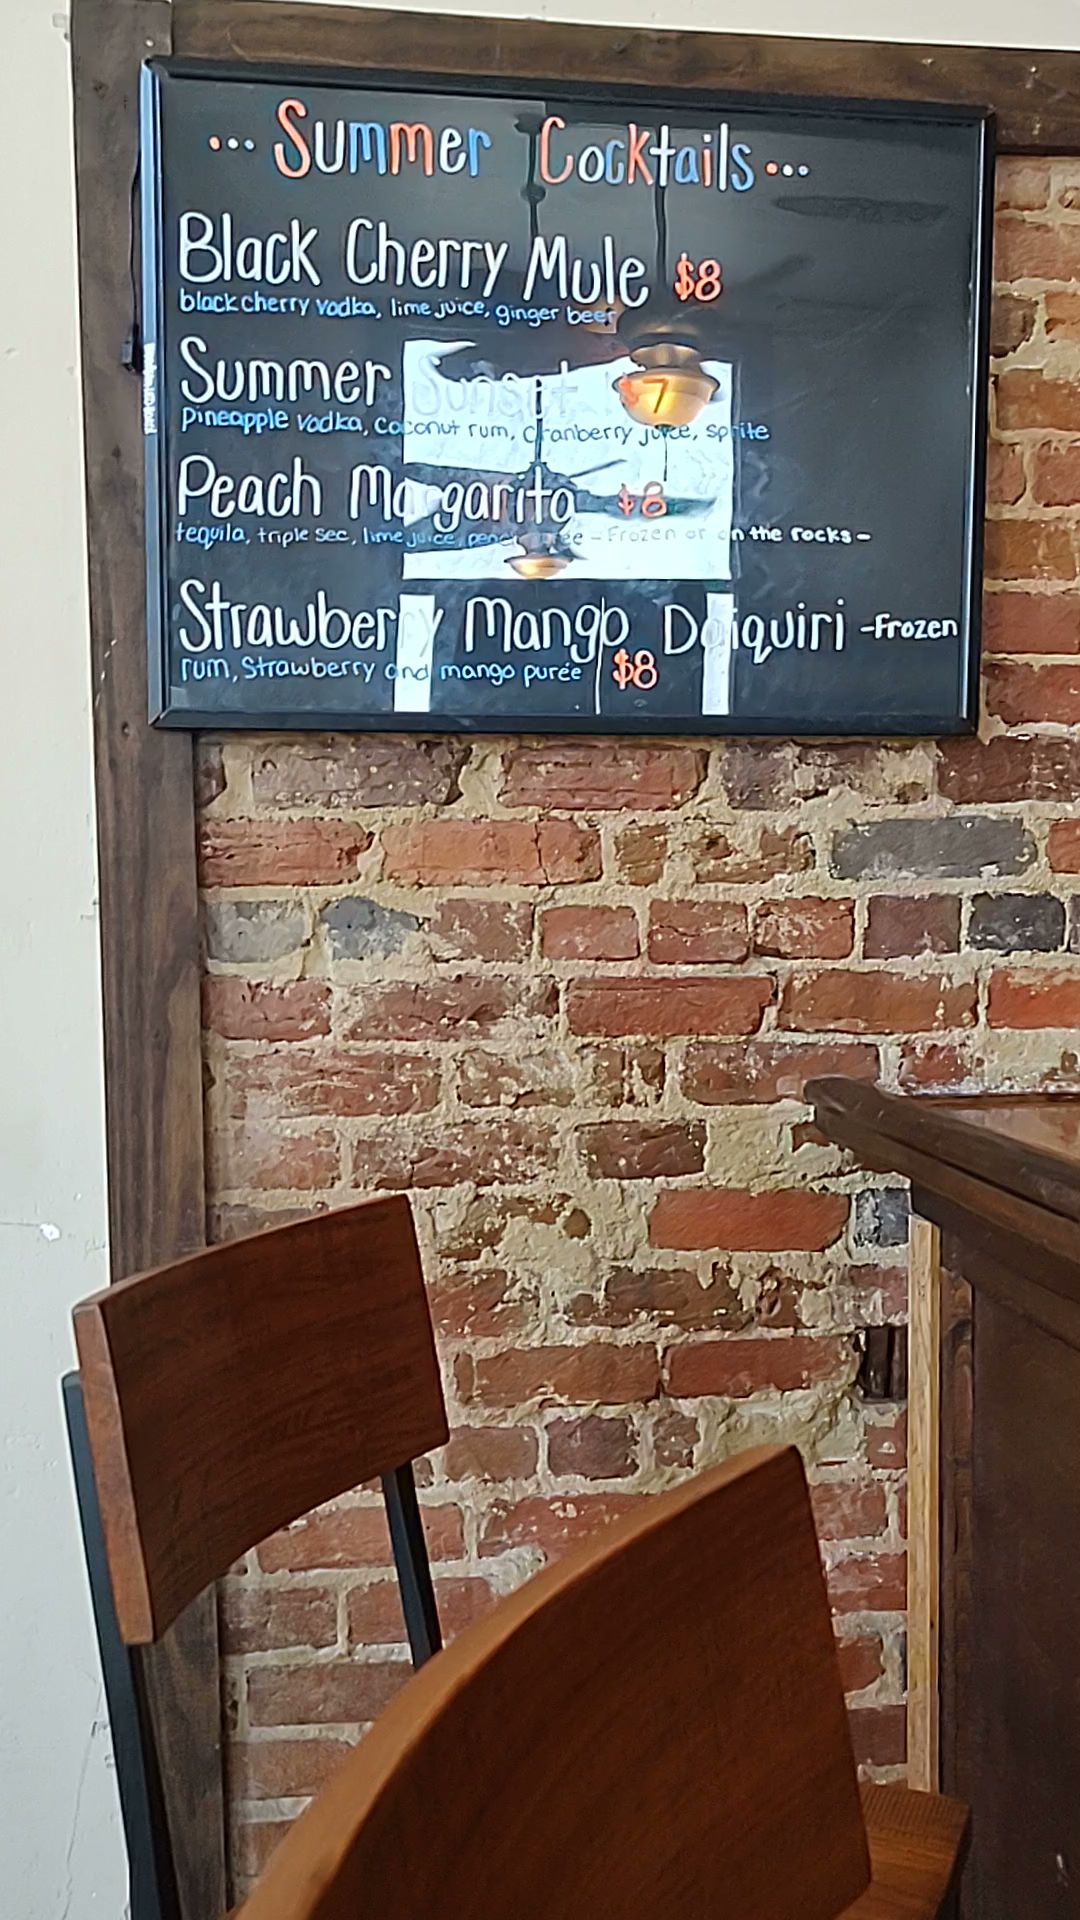 ... Summer Cocktails ...
Black Cherry Mule $8
black cherry vodka, lime juice, ginger beer
Summer Sunset $7
Pineapple vodka, coconut rum, cranberry juice, sprite
Peach Margarita $8
tequila, triple sec, lime juice, peach purée - Frozen or on the rocks -
Strawberry Mango Daiquiri -Frozen
rum, Strawberry and mango purée $8